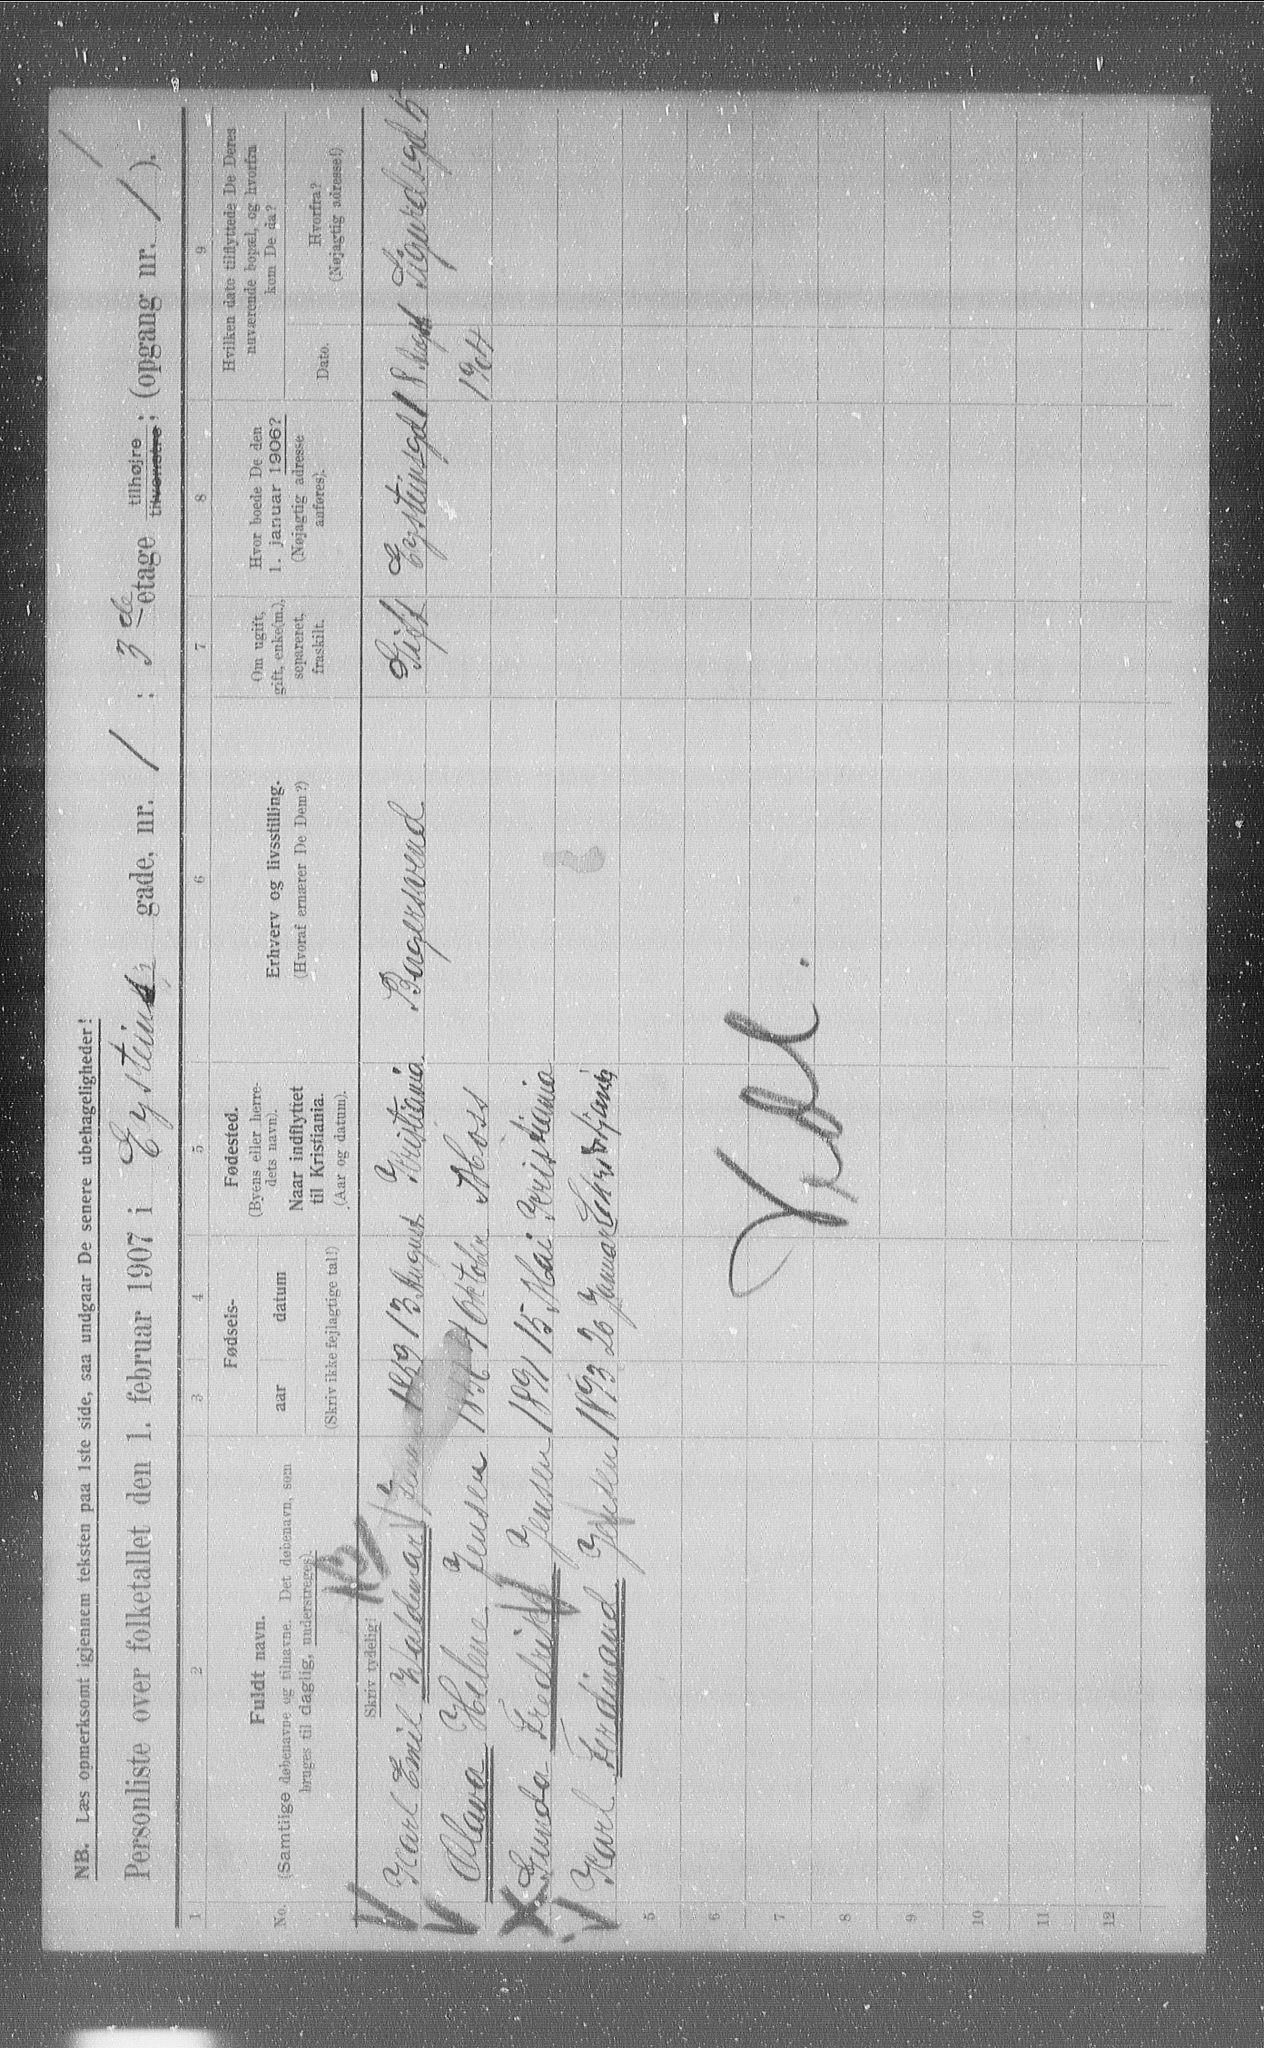 NB. Læs opmerksomt igjennem teksten paa 1ste side, saa undgaar De senere ubehageligheder!
Personliste over folketallet den 1. februar 1907 i Eysteins gade, nr. 1 ; 3 de etage tilhøjre tilvenstre; (opgang nr. 1 ).
1 2 3 4 5 6 7 8 9
No.
Fuldt navn.
(Samtlige døbenavne og tilnavne. Det døbenavn, som
bruges til daglig, understreges).
Skriv tydelig!
Fødsels-
aar datum
(Skriv ikke fejlagtige tal!)
Fødested.
(Byens eller herre-
dets navn).
Naar indflyttet
til Kristiania.
(Aar og datum).
Erhverv og livsstilling.
(Hvoraf ernærer De Dem?)
Om ugift,
gift, enke(m.),
separeret,
fraskilt.
Hvor boede De den
1. januar 1906?
(Nøjagtig adresse
anføres).
Hvilken dato tilflyttede De Deres
nuværende bopæl, og hvorfra
kom De da?
Dato.
Hvorfra?
(Nøjagtig adresse!)
Karl Emil Waldemar Jensen 1869 13 August Kristiania Bagersvend Gift Eysteinsgd 1 8 August Sigurdsgd 5
Olava Helene Jensen 4 Oktober Moss 1904
Fredrikke Jensen 1891 15 Mai Kristiania
Karl Ferdinand Jensen 1893 26 Januar
5
6
7
8
9
10
11
12